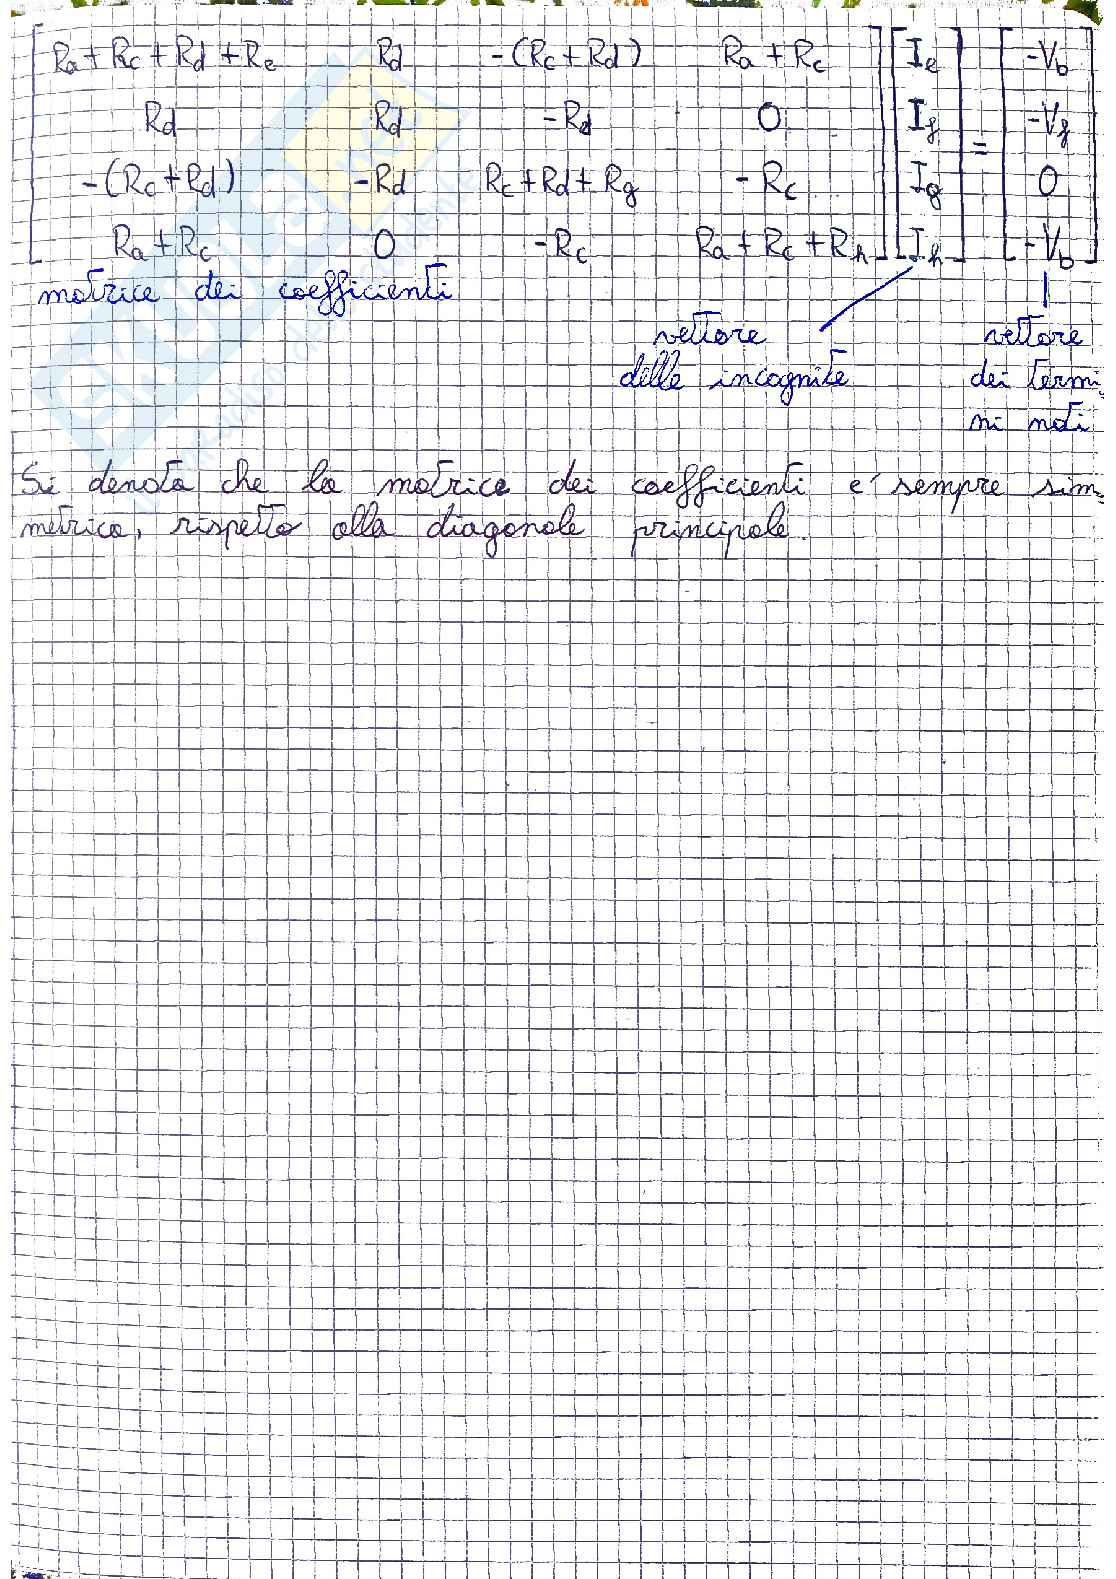 Ra + Rc + Rd + Re   Rd   -(Rc + Rd)   Ra + Rc   Ie   -Vb
Rd   Rd   -Rd   0   If   =   -Vf
-(Rc + Rd)   -Rd   Rc + Rd + Rg   -Rc   Ig   0
Ra + Rc   0   -Rc   Ra + Rc + Rh   Ih   -Vb
matrice dei coefficienti
vettore
delle incognite
vettore
dei termi
ni noti
Si denota che la matrice dei coefficienti e' sempre sim
metrica, rispetto alla diagonale principale.